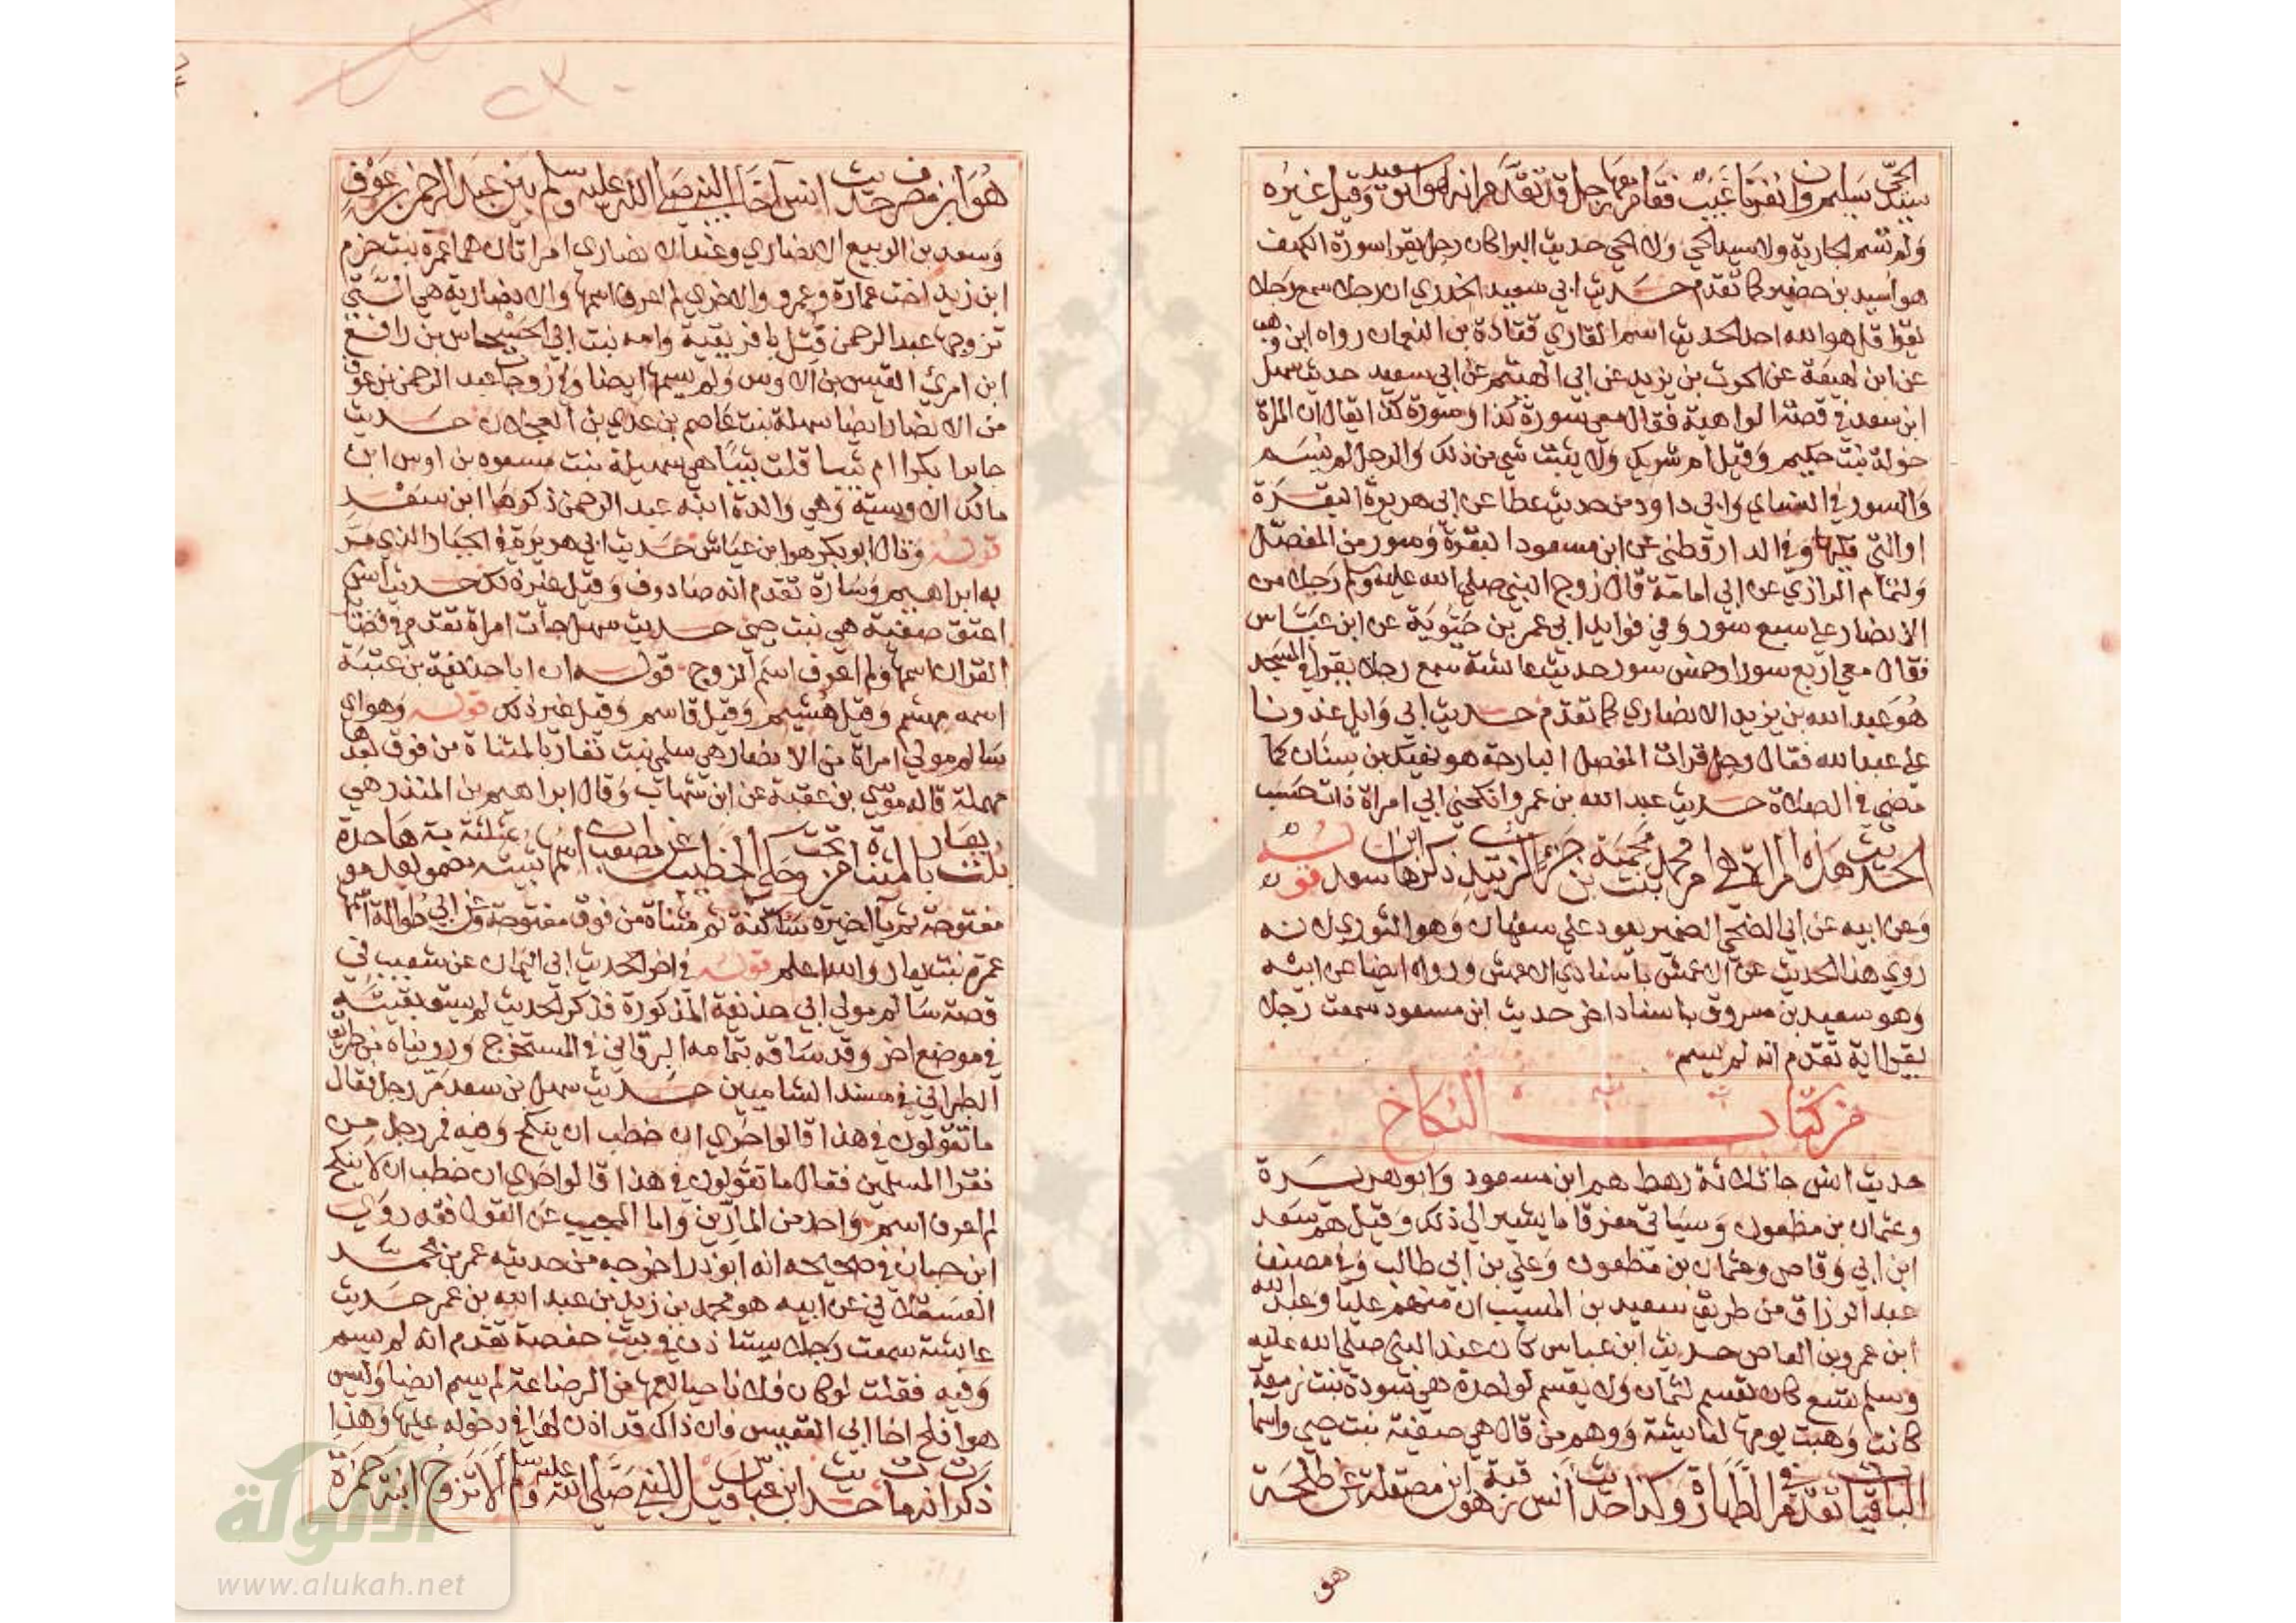 سيد الحي سليم وان نفرنا غيب فقام معها رجل قد تقدم انه هو ابو سعيد وقيل غيره
ولم تسم الجارية ولا سيد الحي ولا الحي حديث البرا كان رجل يقرا سورة الكهف
هو اسيد بن حضير كما تقدم حديث ابي سعيد الخدري ان رجلا سمع رجلا
يقرا قل هو الله احد الحديث اسم القاري قتادة بن النعمان رواه ابن وهب
عن ابن لهيعة عن الحرث بن يزيد عن ابي الهيثم عن ابي سعيد حديث سهل
ابن سعد في قصة الواهبة فقال معي سورة كذا وسورة كذا يقال ان المراة
خولة بنت حكيم وقيل ام شريك ولا يثبت شي من ذلك والرجل لم يسم
والسور في النساي وابي داود من حديث عطا عن ابي هريرة البقرة
او التي تليها وفي الدارقطني عن ابن مسعود البقرة وسور من المفصل
ولتمام الرازي عن ابي امامة قال زوج النبي صلي الله عليه وسلم رجلا من
الانصار علي سبع سور وفي فوايد ابي عمر بن حيوية عن ابن عباس
فقال معي اربع سور او خمس سور حديث عايشة سمع رجلا يقرا في المسجد
هو عبد الله بن يزيد الانصاري كما تقدم حديث ابي وايل غدونا
علي عبد الله فقال رجل قرات المفصل البارحة هو نهيك بن سنان كما
مضي في الصلاة حديث عبد الله بن عمرو انكحني ابي امراة ذات حسب
الحديث هذه المراة هي ام محمد بنت محمية بن جزء الزبيدي ذكرها ابن سعد قوله
وعن ابيه عن ابي الضحي الضمير يعود علي سفيان وهو الثوري لانه
روي هذا الحديث عن الاعمش باسنادي الاعمش ورواه ايضا عن ابيه
وهو سعيد بن مسروق باسناد اخر حديث ابن مسعود سمعت رجلا
يقرا اية تقدم انه لم يسم
من كتاب النكاح
حديث انس جا ثلاثة رهط هم ابن مسعود وابو هريرة
وعثمان بن مظعون وسياتي مفرقا ما يشير الي ذلك وقيل هم سعد
ابن ابي وقاص وعثمان بن مظعون وعلي بن ابي طالب وفي مصنف
عبد الرزاق من طريق سعيد بن المسيب ان منهم عليا وعبد الله
ابن عمرو بن العاص حديث ابن عباس كان عند النبي صلي الله عليه
وسلم تسع كان يقسم لثمان ولا يقسم لواحدة هي سودة بنت زمعة
كانت وهبت يومها لعايشة ووهم من قال هي صفية بنت حيي واسما
الباقيات تقدم في الطهارة وكذا حديث انس رقبة هو ابن مصقلة عن طلحة
هو
هو ابن مصرف حديث انس اخا النبي صلي الله عليه وسلم بين عبد الرحمن بن عوف
وسعد بن الربيع الانصاري وعند الانصاري امراتان هما عمرة بنت حزم
ابن زيد اخت عمارة وعمرو والاخري لم اعرف اسمها والانصارية هي التي
تزوجها عبد الرحمن قتل بافريقية وامه بنت ابي الحيسر انس بن رافع
ابن امرئ القيس بن الاوس ولم يسمها ايضا وفي زوجات عبد الرحمن بن عوف
من الانصار ايضا سهلة بنت عاصم بن عدي بن العجلان حديث
جابر ابكرا ام ثيبا قلت ثيبا هي سهيلة بنت مسعود بن اوس ابن
مالك الاوسية وهي والدة ابنه عبد الرحمن ذكرها ابن سعد
قوله وقال ابو بكر هو ابن عياش حديث ابي هريرة في الجبار الذي مر
به ابراهيم وسارة تقدم انه صادوف وقيل غيره لك حديث انس
اعتق صفية هي بنت حيي حديث سهل جات امراة تقدم في فضايل
القران اسمها ولم اعرف اسم الزوج قوله ان ابا حذيفة بن عتبة
اسمه مهشم وقيل هشيم وقيل قاسم وقيل غير ذلك قوله وهو اي
سالم مولي امراة من الانصار هي سلمي بنت تعار بالمثناة من فوق بعدها
مهملة قاله موسي بن عقبة عن ابن شهاب وقال ابراهيم بن المنذر هي
بنت يعار بالمثناة تحت وحكي الخطيب عن مصعب ان اسمها ثبيتة
مفتوحة ثم يا اخيرة ساكنة ثم مثناة من فوق مفتوحة وعن ابي طوالة انها
عمرة بنت يعار والله اعلم قوله في اخر الحديث ابي اليمان عن شعيب في
قصة سالم مولي ابي حذيفة المذكورة فذكر الحديث لم يسق بقيته
في موضع اخر وقد ساقه بتمامه البرقاني في المستخرج ورويناه من طريق
الطبراني في مسند الشاميين حديث سهل بن سعد مر رجل فقال
ما تقولون في هذا قالوا حري ان خطب ان ينكح وفيه فمر رجل من
فقرا المسلمين فقال ما تقولون في هذا قالوا حري ان خطب ان لا ينكح
لم اعرف اسم واحد من المارين واما المجيب عن القول فقد روي
ابن حبان في صحيحه انه ابو ذر اخرجه من حديثه عمر بن محمد
العسقلاني عن ابيه هو محمد بن زيد بن عبد الله بن عمر حديث
عايشة سمعت رجلا يستاذن في بيت حفصة تقدم انه لم يسم
وفيه فقلت لو كان فلانا حيا لعمها من الرضاعة لم يسم ايضا وليس
هو افلح اخا ابي القعيس فان ذاك قد اذن لها في دخوله عليها وهذا
ذكرت انه مات حديث ابن عباس قيل للنبي صلي الله عليه وسلم الا تزوج ابنة حمزة
الألوكة
www.alukah.net